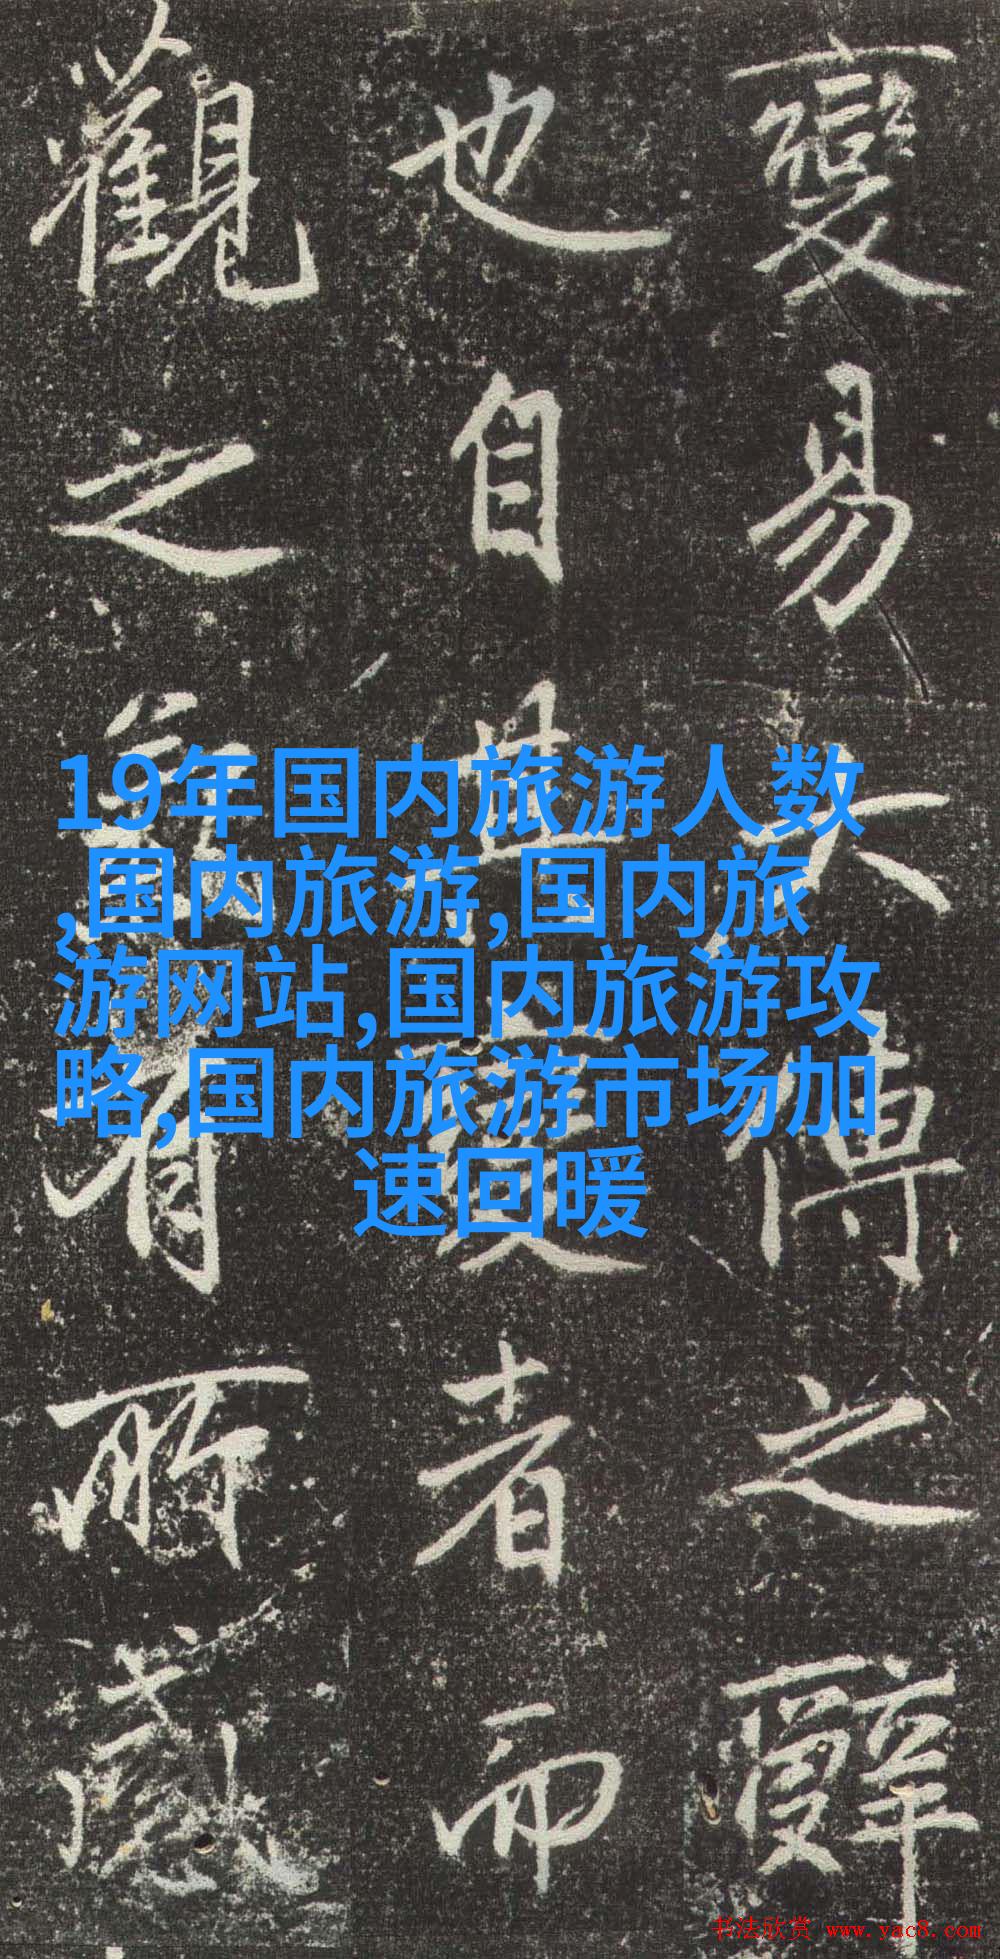 變易之辭
也自其變者而
觀之有所感
19年国内旅游人数
,国内旅游,国内旅
游网站,国内旅游攻
略,国内旅游市场加
速回暖
书法欣赏 www.yac8.com